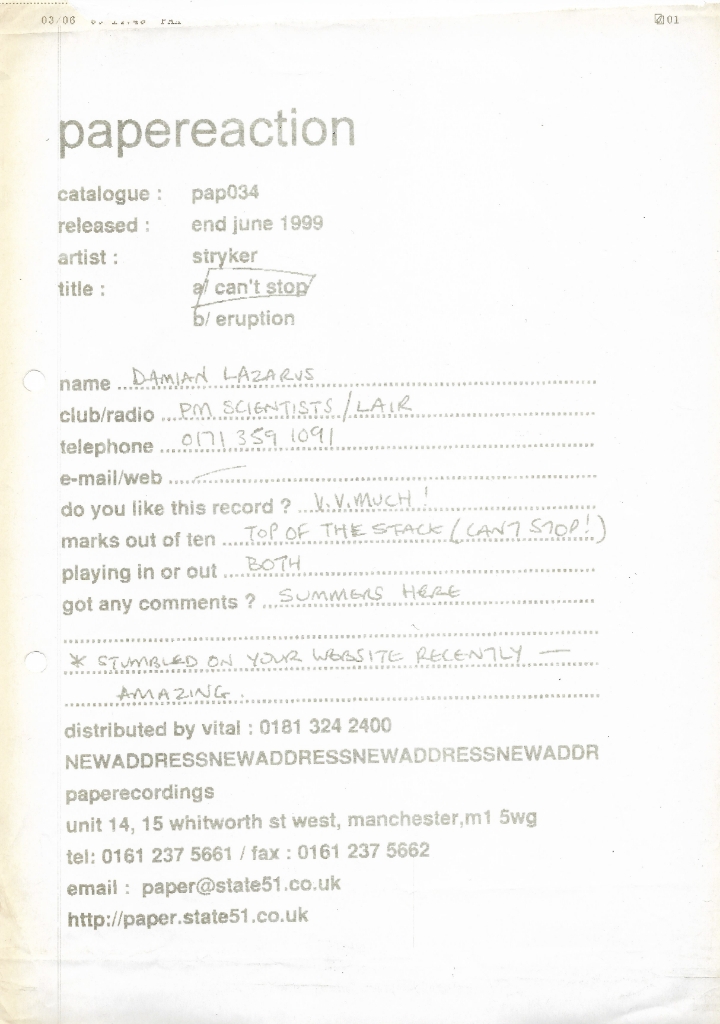 03/06
01
papereaction
catalogue : pap034
released : end june 1999
artist : stryker
title : a/ can't stop
b/ eruption
name DAMIAN LAZARUS
club/radio PM SCIENTISTS / LAIR
telephone 0171 359 1091
e-mail/web
do you like this record ? V.V.MUCH !
marks out of ten TOP OF THE STACK (CAN'T STOP!)
playing in or out BOTH
got any comments ? SUMMERS HERE
* STUMBLED ON YOUR WEBSITE RECENTLY —
AMAZING.
distributed by vital : 0181 324 2400
NEWADDRESSNEWADDRESSNEWADDRESSNEWADDR
paperecordings
unit 14, 15 whitworth st west, manchester,m1 5wg
tel: 0161 237 5661 / fax : 0161 237 5662
email : paper@state51.co.uk
http://paper.state51.co.uk